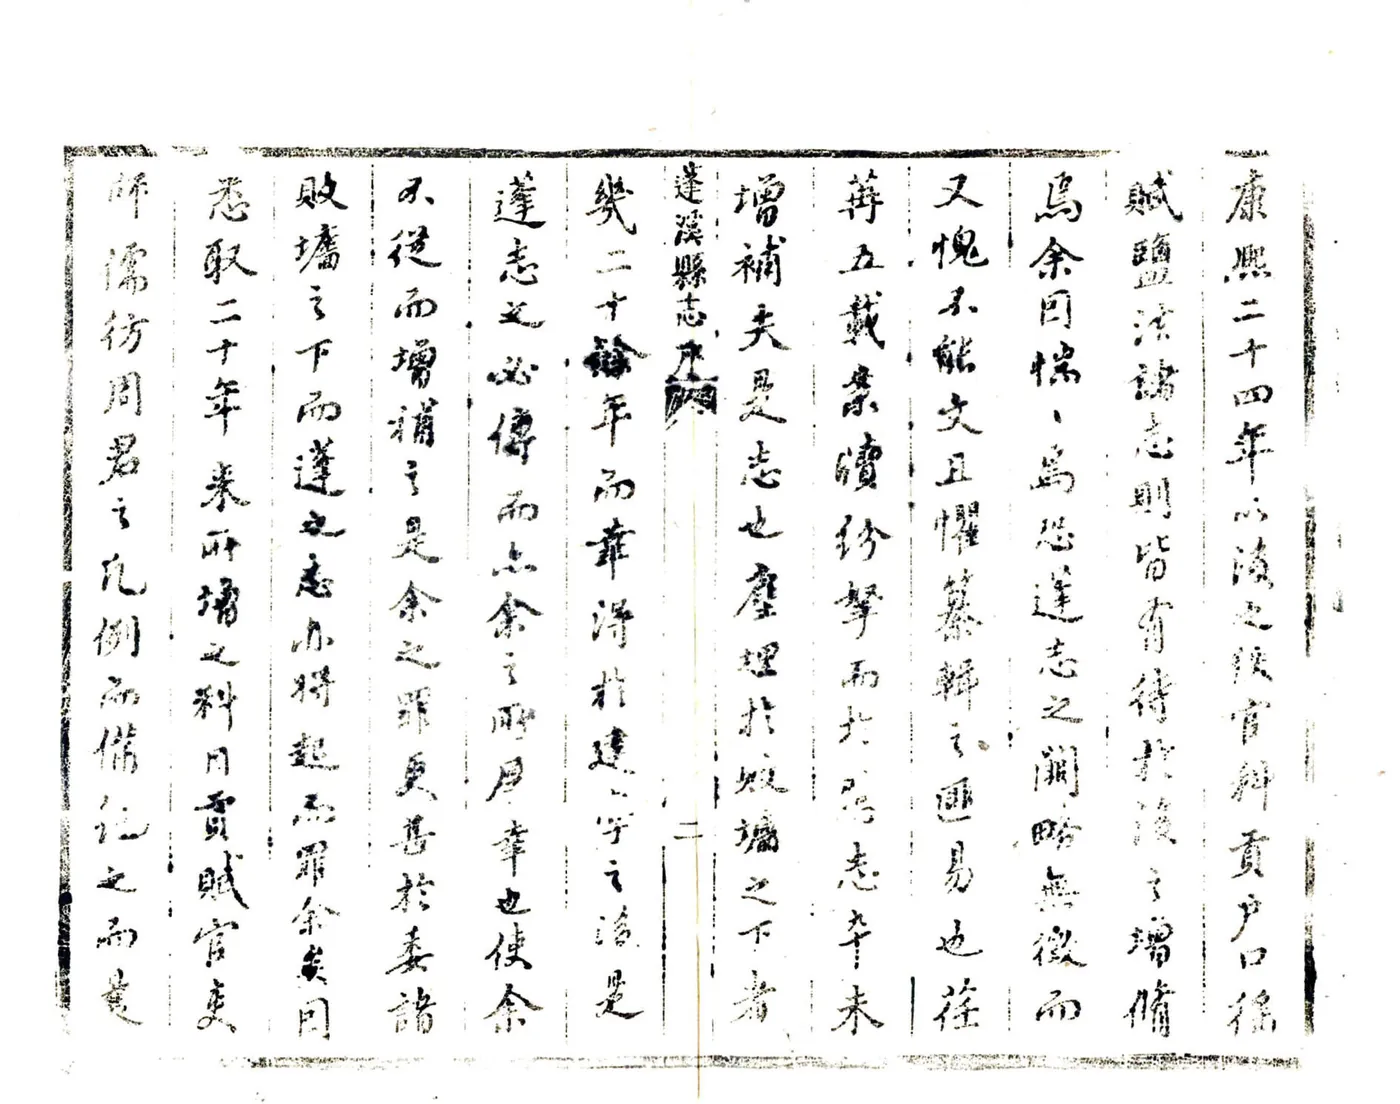 康熙二十四年以後之秩官科貢户口徭
賦鹽法諸志則皆有待於後之增脩
焉余因惴、焉恐蓬志之闕略無徵而
又愧不能文且懼纂輯之匪易也荏
苒五載案牘紛拏而於邑志卒未
增補夫是志也塵埋於敗墉之下者
蓬溪縣志序
二
幾二十餘年而幸得於建、宇之後是
蓬志之必傳而亦余之所爲幸也使余
不從而增補之是余之罪更甚於委諸
敗墉之下而蓬之志亦將起而罪余矣因
悉取二十年來所增之科目貢賦官吏
師儒仿周君之凡例而備紀之而其